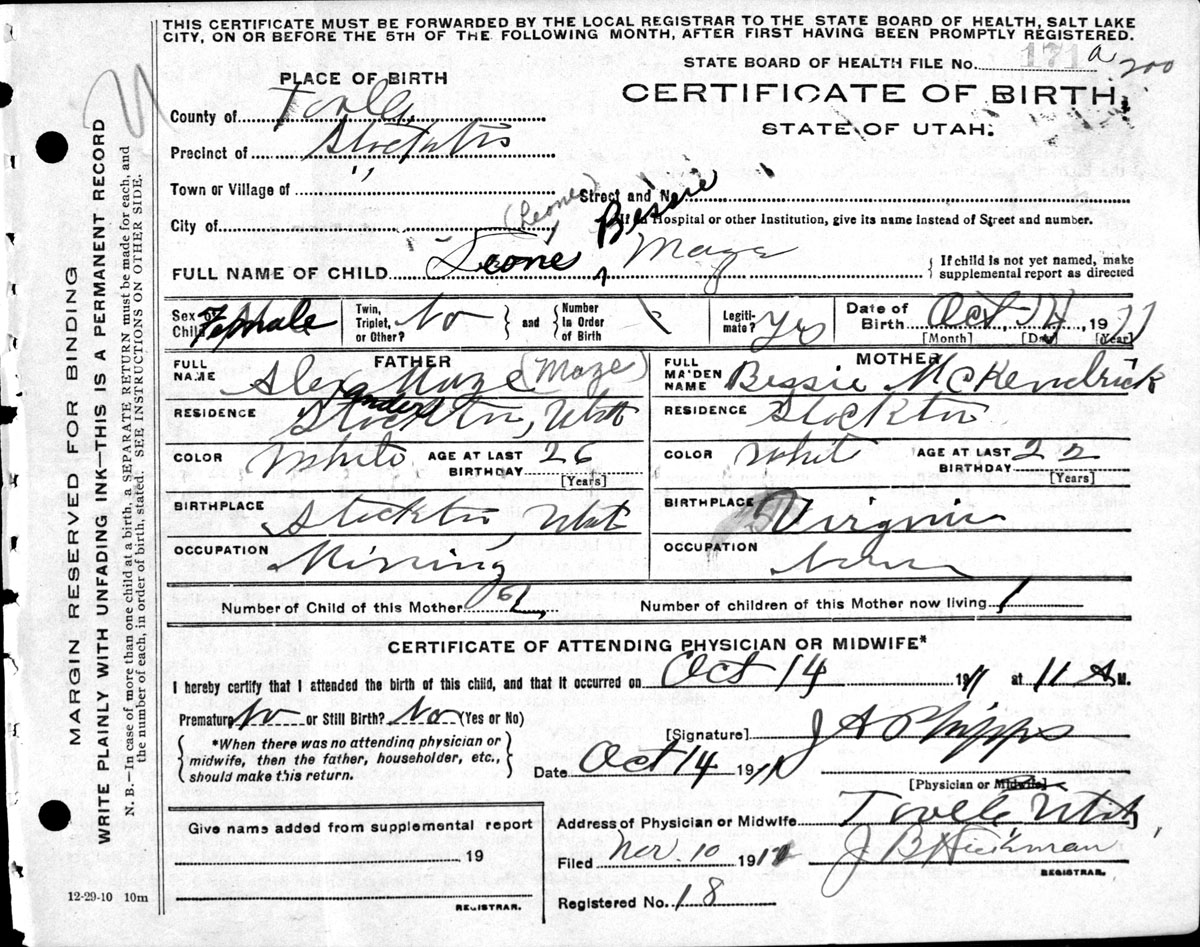 THIS CERTIFICATE MUST BE FORWARDED BY THE LOCAL REGISTRAR TO THE STATE BOARD OF HEALTH, SALT LAKE
CITY, ON OR BEFORE THE 5TH OF THE FOLLOWING MONTH, AFTER FIRST HAVING BEEN PROMPTLY REGISTERED.
STATE BOARD OF HEALTH FILE No. 171 a 200
PLACE OF BIRTH
CERTIFICATE OF BIRTH
STATE OF UTAH.
County of Tooele
Precinct of Stockton
Town or Village of "
Street and No.
(Leone)
City of
If in Hospital or other Institution, give its name instead of Street and number.
FULL NAME OF CHILD Leone Bessie Maze
{ If child is not yet named, make supplemental report as directed
Sex of Child Female
Twin, Triplet, or Other? No } and { Number In Order of Birth
Legitimate? Yes
Date of Birth Oct 14, 1911
[Month] [Day] [Year]
FATHER
FULL NAME Alexander Maze (Maze)
RESIDENCE Stockton, Utah
COLOR White AGE AT LAST BIRTHDAY 26
[Years]
BIRTHPLACE Stockton, Utah
OCCUPATION Mining
MOTHER
FULL MAIDEN NAME Bessie McKendrick
RESIDENCE Stockton
COLOR Whit AGE AT LAST BIRTHDAY 22
[Years]
BIRTHPLACE Virginia
OCCUPATION
Number of Child of this Mother
Number of children of this Mother now living 1
CERTIFICATE OF ATTENDING PHYSICIAN OR MIDWIFE*
I hereby certify that I attended the birth of this child, and that it occurred on Oct 14 1911 at 11 A M.
Premature No or Still Birth? No (Yes or No)
{ *When there was no attending physician or midwife, then the father, householder, etc., should make this return. }
[Signature] J A Phipps
Date Oct 14 1911
[Physician or Midwife]
Address of Physician or Midwife Tooele Utah,
Give name added from supplemental report
19
REGISTRAR.
Filed Nov. 10 191
J B Hickman
REGISTRAR.
Registered No. 18
12-29-10 10m
MARGIN RESERVED FOR BINDING
WRITE PLAINLY WITH UNFADING INK—THIS IS A PERMANENT RECORD
N. B.—In case of more than one child at a birth, a SEPARATE RETURN must be made for each, and
the number of each, in order of birth, stated. SEE INSTRUCTIONS ON OTHER SIDE.